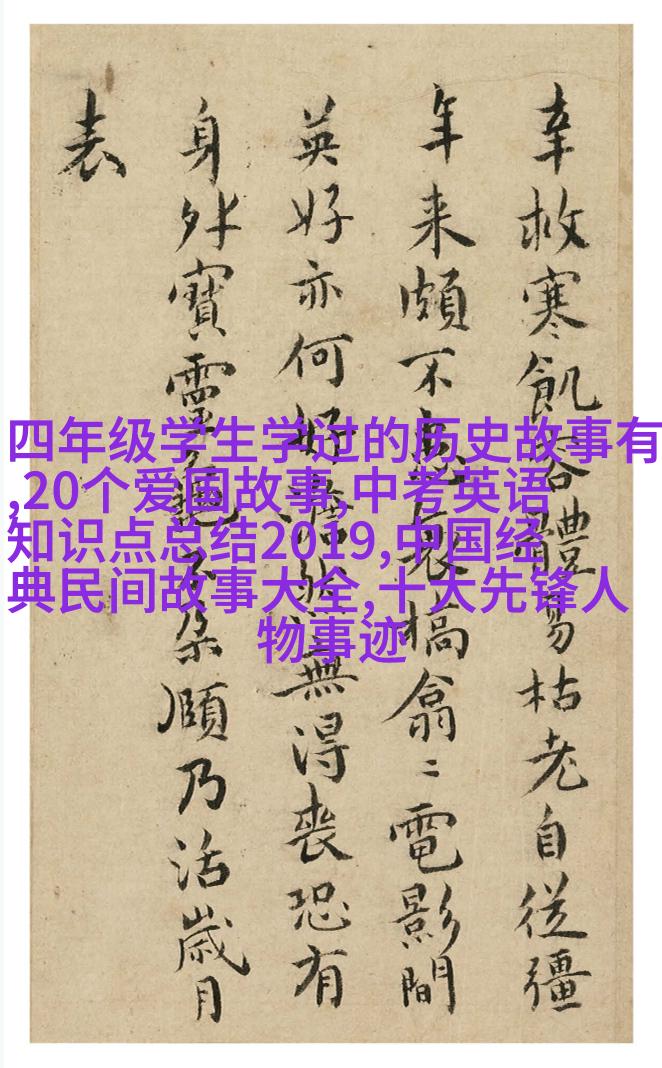 四年级学生学过的历史故事有
,20个爱国故事,中考英语
知识点总结2019,中国经
典民间故事大全,十大先锋人
物事迹
幸救寒飢容體易枯老自從彊
年来頗不衰槁翕〻電影間
英好亦何好無得喪恐有
身外寶靈龜朵頤乃活歲月
表